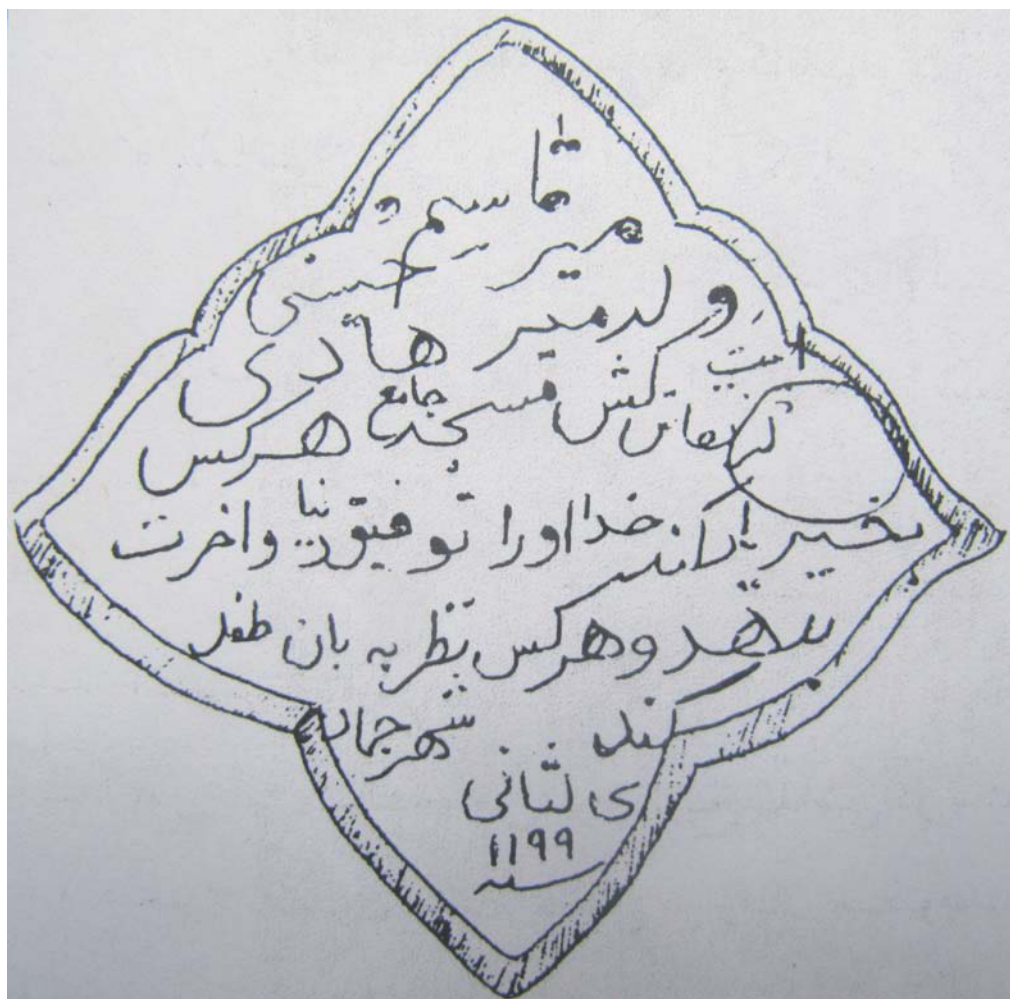 قاسم و
میر حسنی
ولد میر هادی
است کش مسجد جامع هرکس
بخیر یاد کند خدا او را توفیق دنیا و اخرت
بدهد و هرکس نظر به بان طفل
کند .. شهر جماد
ی لثانی
۱۱۹۹
سنه